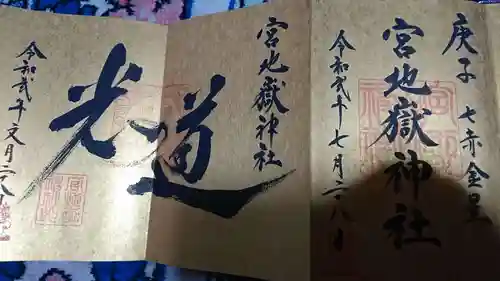 庚子 七赤金星
宮地嶽神社
令和弐年七月二八日
宮地嶽神社
光道
令和弐年文月二八日